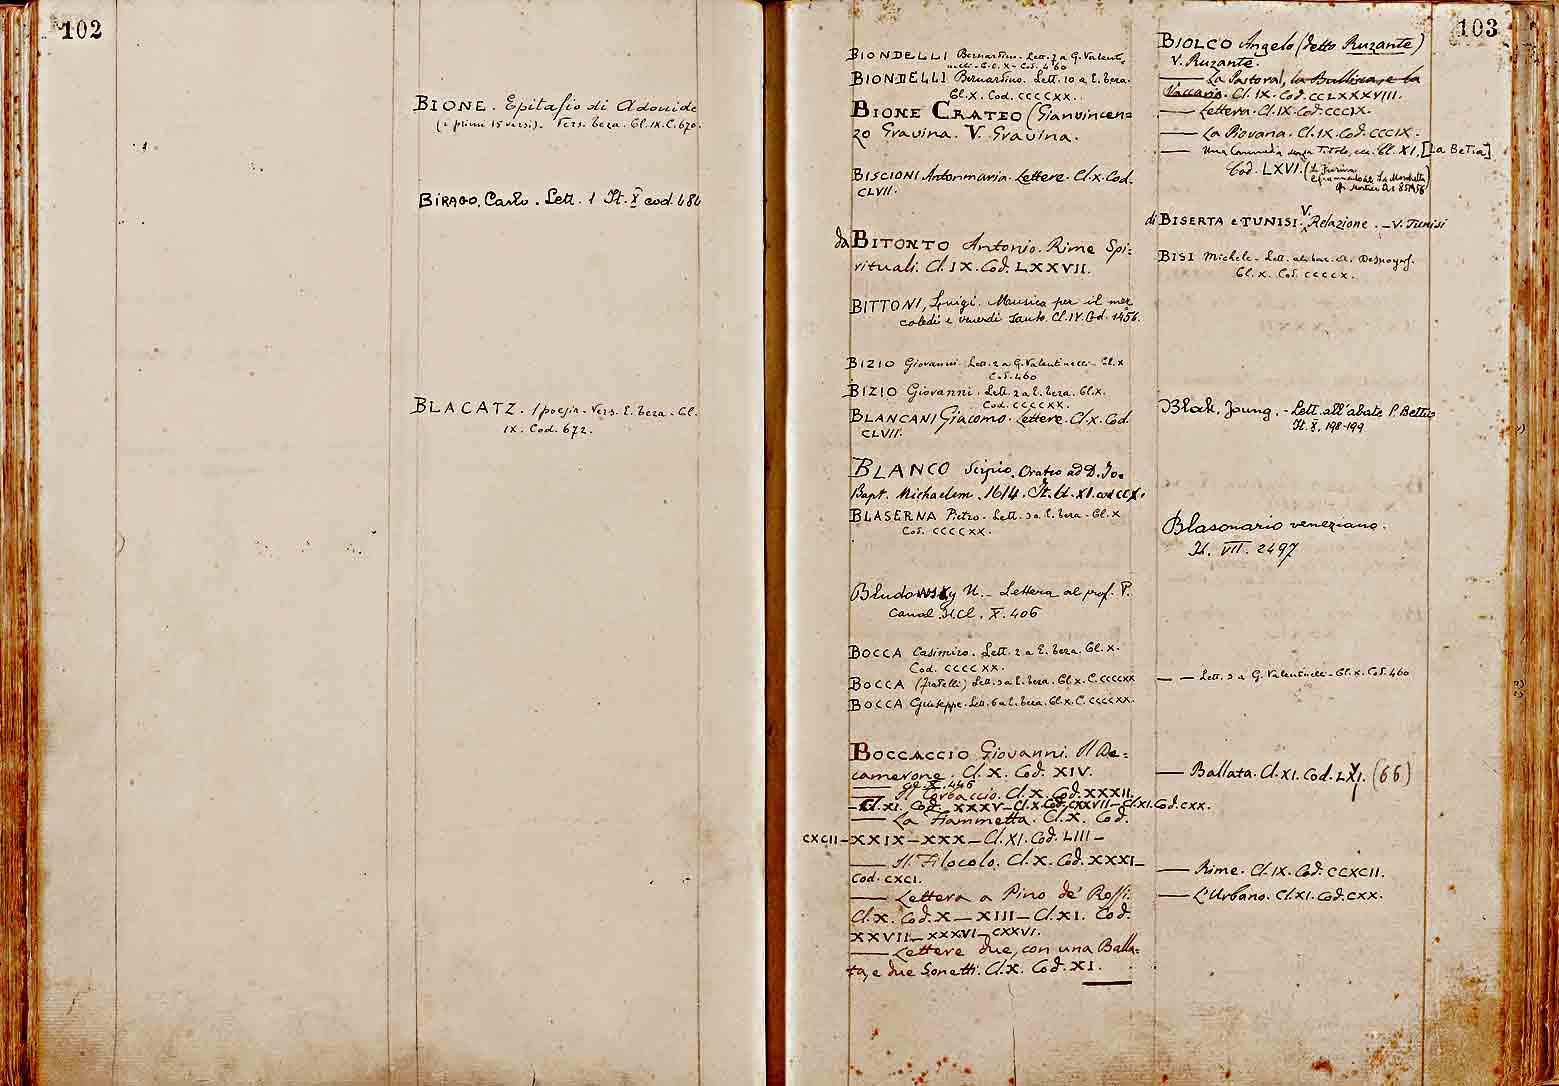 102
BIONE. Epitafio di Adonide
(i primi 15 versi). Vers. Teza. Cl. IX. C. 670.
BIRAGO, Carlo. Lett. 1 It. X cod. 484
BLACATZ. 1 poesia. Vers. E. Teza. Cl.
IX. Cod. 672.
103
BIONDELLI Bernardino. Lett. 7 a G. Valenti
nelli. Cl. X. Cod. 460
BIONDELLI Bernardino. Lett. 10 a E. Teza.
Cl. X. Cod. CCCCXX.
BIONE CRATEO (Gianvincen=
zo Gravina. V. Gravina.
BISCIONI Antonmaria. Lettere. Cl. X. Cod.
CLVII.
da BITONTO Antonio. Rime Spi=
rituali. Cl. IX. Cod. LXXVII.
BITTONI, Luigi. Musica per il mer
coledì e venerdì santo. Cl. IV. Cod. 1456.
BIZIO Giovanni. Lett. 2 a G. Valentinelli. Cl. X
Cod. 460
BIZIO Giovanni. Lett. 2 a E. Teza. Cl. X.
Cod. CCCCXX.
BLANCANI Giacomo. Lettere. Cl. X. Cod.
CLVII.
BLANCO Scipio. Oratio ad D. Jo.
Bapt. Michaelem. 1614. It. Cl. XI. cod CCX.
BLASERNA Pietro. Lett. 3 a E. Teza. Cl. X
Cod. CCCCXX.
Bludowsky N. - Lettera al prof. P.
Canal. It. Cl. X. 406
BOCCA Casimiro. Lett. 2 a E. Teza. Cl. X.
Cod. CCCCXX.
BOCCA (fratelli) Lett. 3 a E. Teza. Cl. X. C. CCCCXX
BOCCA Giuseppe. Lett. 6 a E. Teza. Cl. X. C. CCCCXX.
BOCCACCIO Giovanni. Il De=
camerone. Cl. X. Cod. XIV.
X. 446
— Il Corbaccio. Cl. X. Cod. XXXII.
— Cl. XI. Cod. XXXV — Cl. X. Cod. CXXVII — Cl. XI. Cod. CXX.
— La Fiammetta. Cl. X. Cod.
CXCII — XXIX — XXX — Cl. XI. Cod. LIII —
— Il Filocolo. Cl. X. Cod. XXXI —
Cod. CXCI.
— Lettera a Pino de' Rossi.
Cl. X. Cod. X — XIII — Cl. XI. Cod.
XXVII — XXXVI — CXXVI.
— Lettere due, con una Balla=
ta, e due Sonetti. Cl. X. Cod. XI.
BIOLCO Angelo (detto Ruzante)
V. Ruzante.
— La Pastoral, la Bullesca, e la
Vaccaria. Cl. IX. Cod. CCLXXXVIII.
— Lettera. Cl. IX. Cod. CCCIX.
— La Piovana. Cl. IX. Cod. CCCIX.
— Una Commedia senza Titolo, ecc. Cl. XI, [La Betia]
Cod. LXVI.
di BISERTA e TUNISI. V. Relazione. — V. Tunisi
BISI Michele. Lett. al bar. A. Desnoyes.
Cl. X. Cod. CCCCX.
Black, Joung. - Lett. all'abate P. Bettio
It. X, 198-199
Blasonario veneziano.
It. VII. 2497
— — Lett. 3 a G. Valentinelli. Cl. X. Cod. 460
— Ballata. Cl. XI. Cod. LXVI. (66)
— Rime. Cl. IX. Cod. CCXCII.
— L'Urbano. Cl. XI. Cod. CXX.